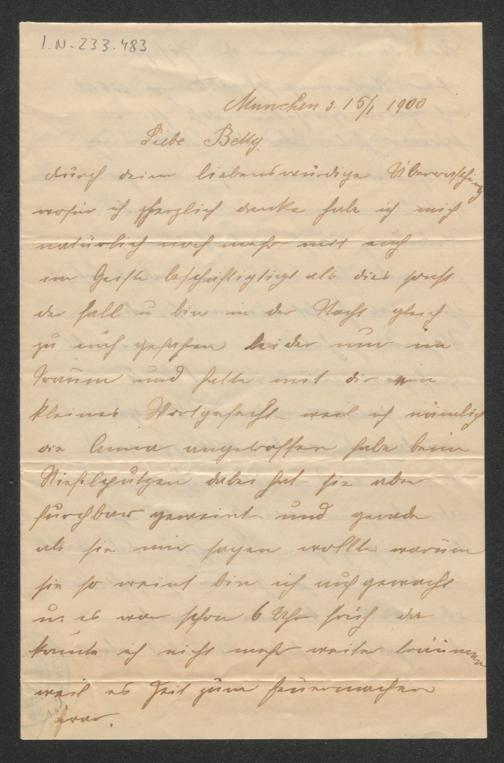 I.N. 233.483
München d. 15/1 1900
Liebe Betty
durch deine liebenswürdige Überraschung
wofür ich herzlich danke habe ich mich
natürlich noch mehr mit euch
im Geiste beschäftigt als dies sonst
der Fall u bin in der Nacht gleich
zu euch gefahren leider nur im
Traum und hatte mit dir ein
kleines Wortgefecht weil ich nämlich
die Anna angetroffen habe beim
Stiefelputzen dabei hat sie aber
furchbar geweint und gerade
als sie mir sagen wollte warum
sie so weint bin ich aufgewacht
u. es war schon 6 Uhr früh da
konnte ich nicht mehr weiter träumen
weil es Zeit zum Feuermachen
war.